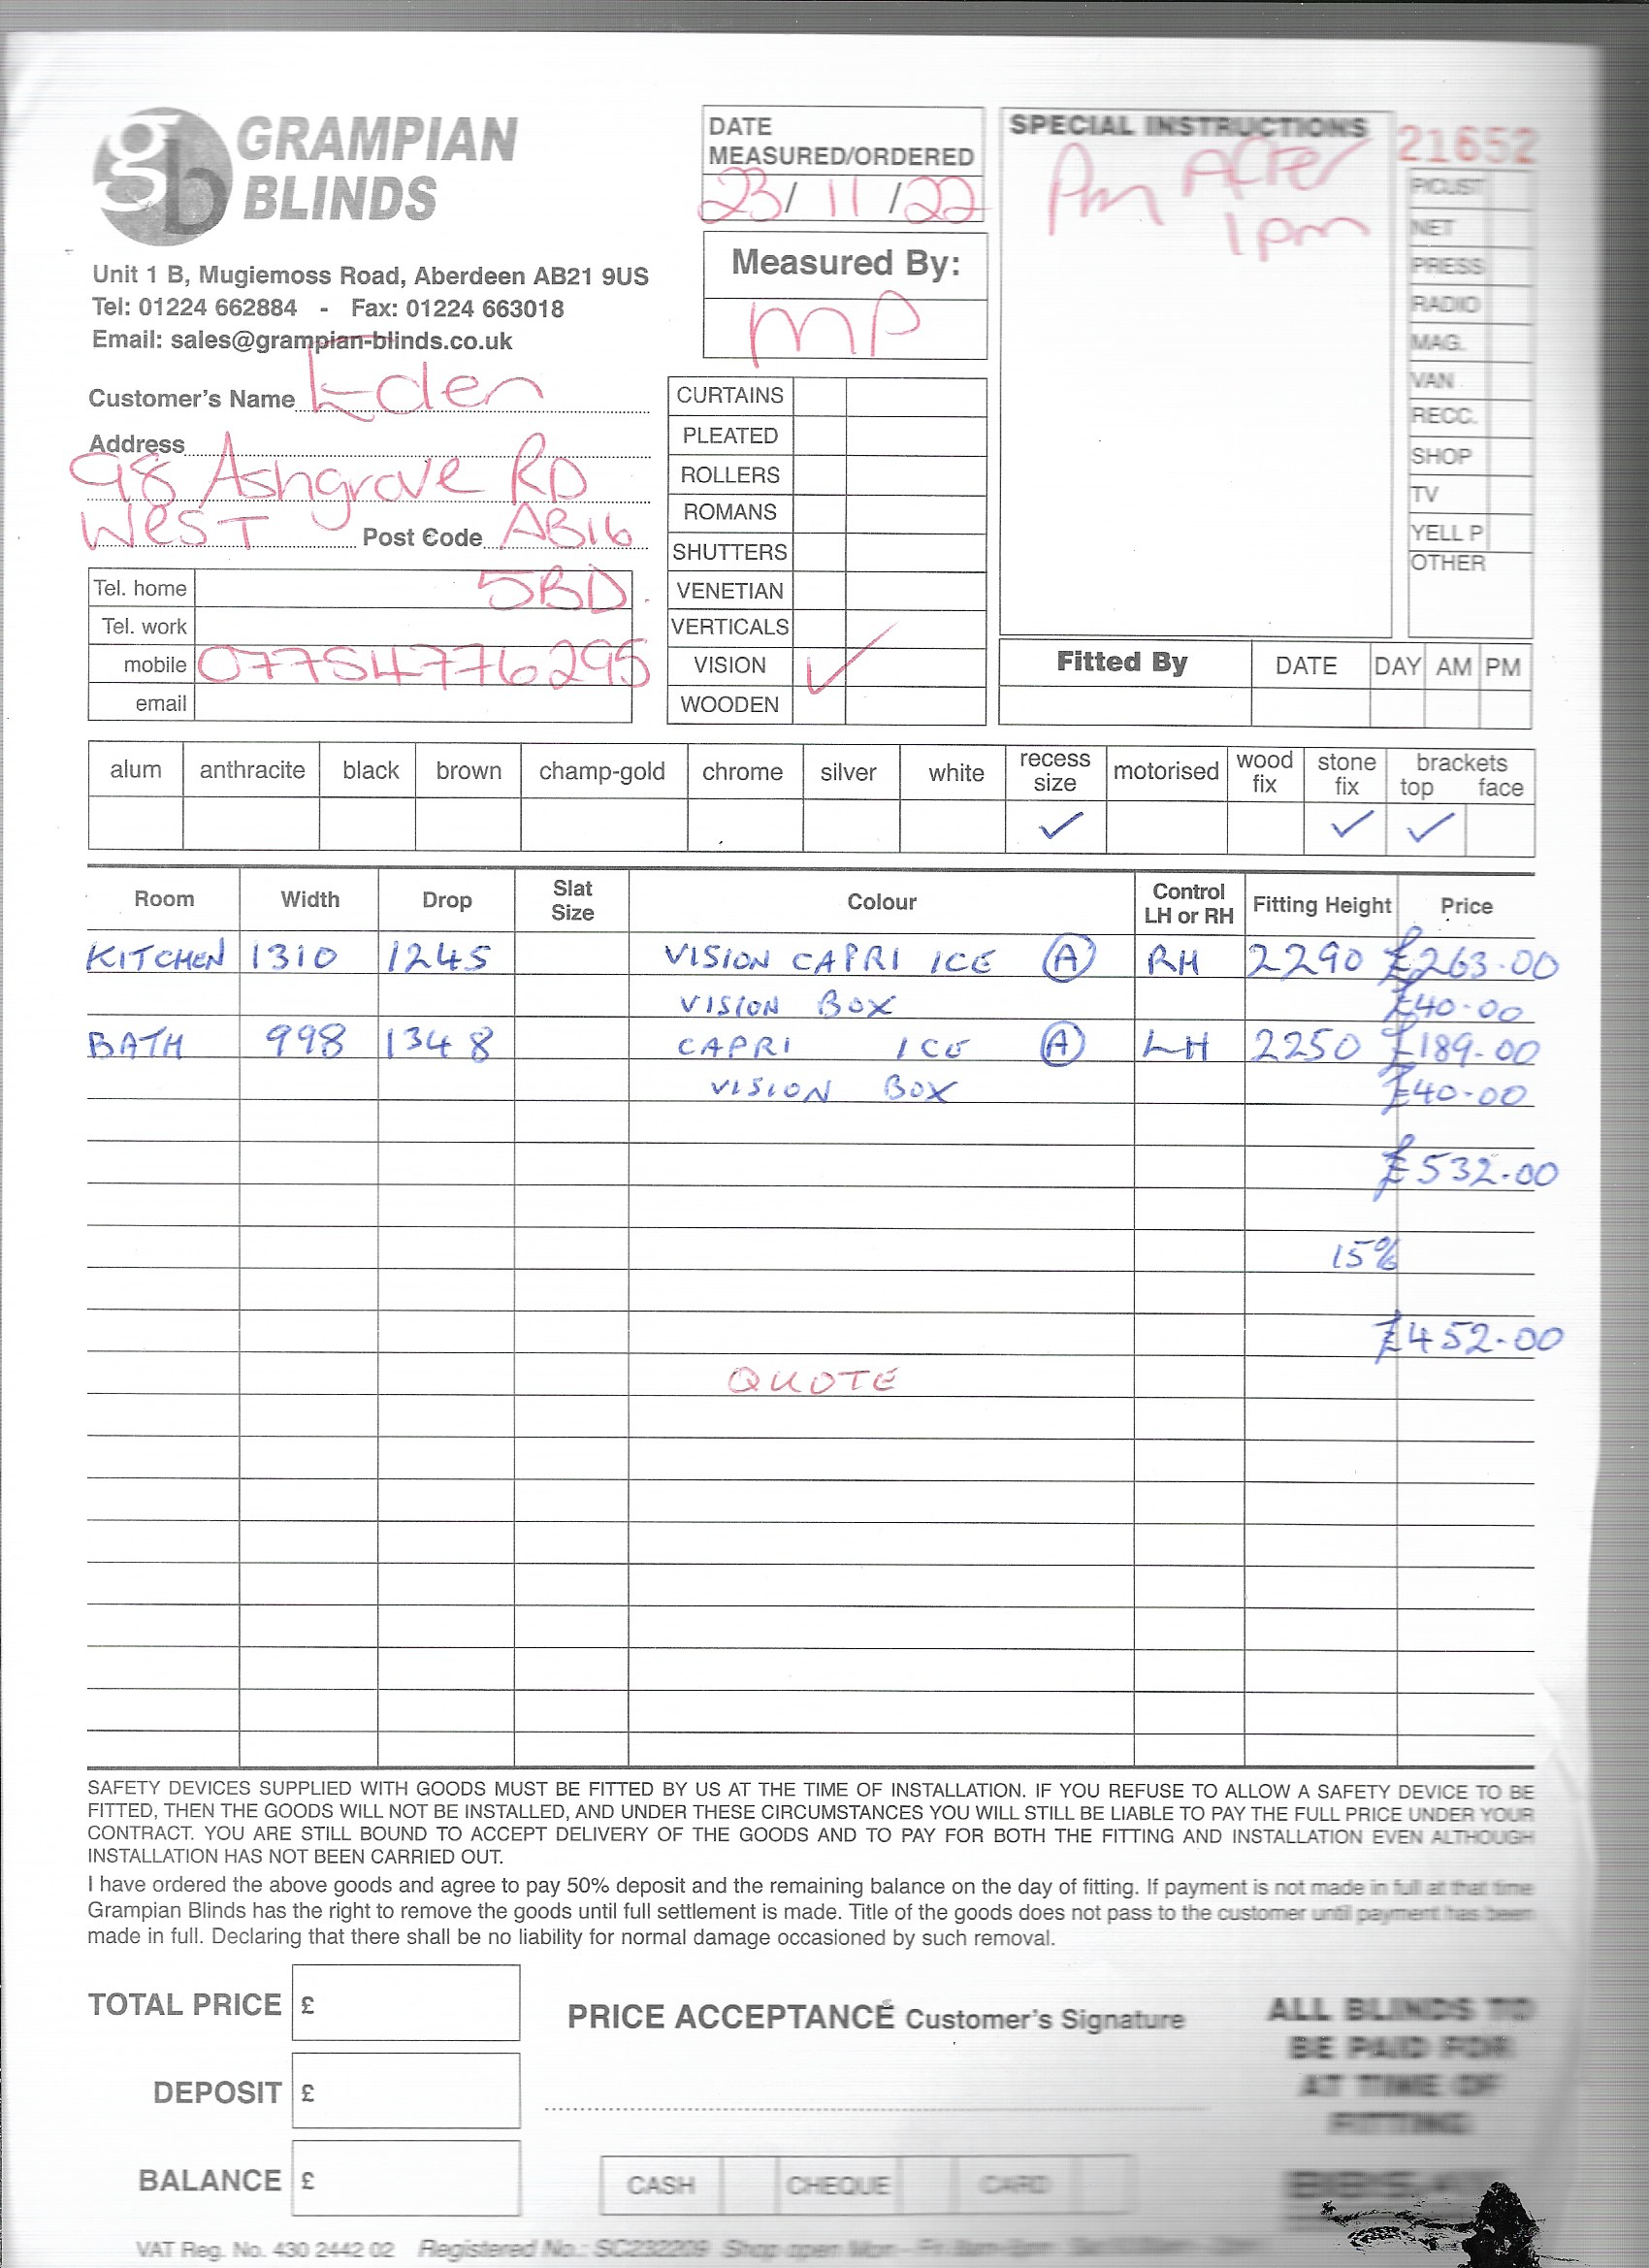 gb GRAMPIAN
BLINDS
Unit 1 B, Mugiemoss Road, Aberdeen AB21 9US
Tel: 01224 662884 - Fax: 01224 663018
Email: sales@grampian-blinds.co.uk
Customer's Name Eden
Address
98 Ashgrove RD
WEST Post Code AB16
Tel. home 5BD.
Tel. work
mobile 07754776295
email
DATE
MEASURED/ORDERED
23/11/22
Measured By:
MP
CURTAINS
PLEATED
ROLLERS
ROMANS
SHUTTERS
VENETIAN
VERTICALS
VISION ✓
WOODEN
SPECIAL INSTRUCTIONS
Pm After
1pm
21652
P/CUST
NET
PRESS
RADIO
MAG.
VAN
RECC.
SHOP
TV
YELL P
OTHER
Fitted By DATE DAY AM PM
alum anthracite black brown champ-gold chrome silver white recess size motorised wood fix stone fix brackets top face
✓ ✓ ✓
Room Width Drop Slat Size Colour Control LH or RH Fitting Height Price
KITCHEN 1310 1245 VISION CAPRI ICE A RH 2290 £263.00
VISION BOX £40.00
BATH 998 1348 CAPRI ICE A LH 2250 £189.00
VISION BOX £40.00
£532.00
15%
£452.00
QUOTE
SAFETY DEVICES SUPPLIED WITH GOODS MUST BE FITTED BY US AT THE TIME OF INSTALLATION. IF YOU REFUSE TO ALLOW A SAFETY DEVICE TO BE
FITTED, THEN THE GOODS WILL NOT BE INSTALLED, AND UNDER THESE CIRCUMSTANCES YOU WILL STILL BE LIABLE TO PAY THE FULL PRICE UNDER YOUR
CONTRACT. YOU ARE STILL BOUND TO ACCEPT DELIVERY OF THE GOODS AND TO PAY FOR BOTH THE FITTING AND INSTALLATION EVEN ALTHOUGH
INSTALLATION HAS NOT BEEN CARRIED OUT.
I have ordered the above goods and agree to pay 50% deposit and the remaining balance on the day of fitting. If payment is not made in full at that time
Grampian Blinds has the right to remove the goods until full settlement is made. Title of the goods does not pass to the customer until payment has been
made in full. Declaring that there shall be no liability for normal damage occasioned by such removal.
TOTAL PRICE £
DEPOSIT £
BALANCE £
PRICE ACCEPTANCE Customer's Signature
CASH CHEQUE CARD
ALL BLINDS TO
BE PAID FOR
AT TIME OF
FITTING
VAT Reg. No. 430 2442 02 Registered No.: SC232209 Shop open Mon - Fri